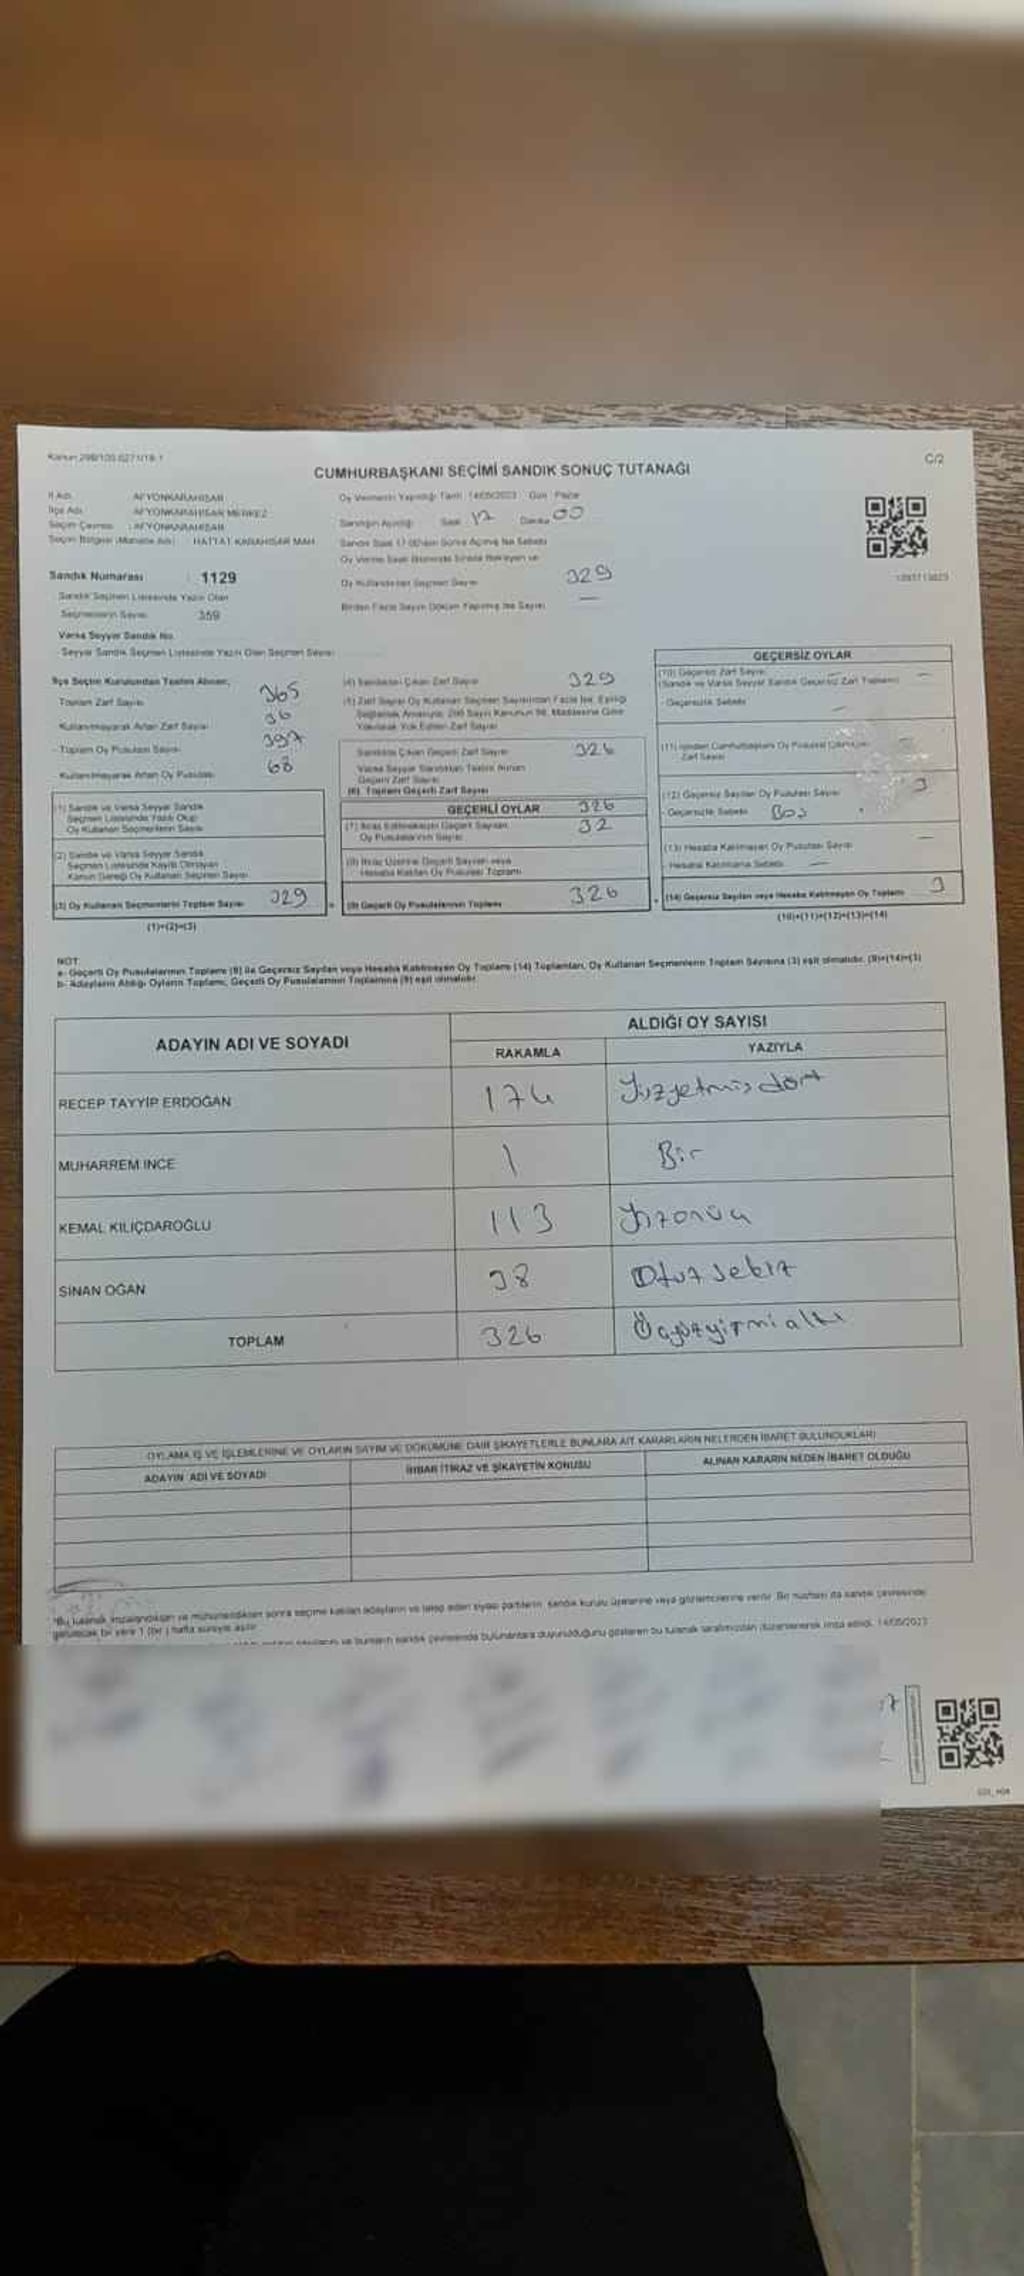 Kanun 298/105
C/2
CUMHURBAŞKANI SEÇİMİ SANDIK SONUÇ TUTANAĞI
İl Adı AFYONKARAHİSAR
İlçe Adı AFYONKARAHİSAR MERKEZ
Seçim Çevresi : AFYONKARAHİSAR
Seçim Bölgesi (Mahalle Adı) HATTAT KARAHİSAR MAH.
Sandık Numarası : 1129
Sandık Seçmen Listesinde Yazılı Olan
Seçmenlerin Sayısı 359
Varsa Seyyar Sandık No
Seyyar Sandık Seçmen Listesinde Yazılı Olan Seçmen Sayısı
Oy Vermenin Yapıldığı Tarih 14/05/2023 Gün Pazar
Sandığın Açıldığı Saat 17 Dakika 00
Oy Kullandırılan Seçmen Sayısı 329
Birden Fazla Sayım Döküm Yapılmış İse Sayısı —
İlçe Seçim Kurulundan Teslim Alınan;
Toplam Zarf Sayısı 365
Kullanılmayarak Artan Zarf Sayısı 36
Toplam Oy Pusulası Sayısı 397
Kullanılmayarak Artan Oy Pusulası 68
(1) Sandık ve Varsa Seyyar Sandık
Seçmen Listesinde Yazılı Olup
Oy Kullanan Seçmenlerin Sayısı
(2) Sandık ve Varsa Seyyar Sandık
Seçmen Listesinde Kayıtlı Olmayan
Kanun Gereği Oy Kullanan Seçmen Sayısı
(3) Oy Kullanan Seçmenlerin Toplam Sayısı 329
(1)+(2)=(3)
(4) Sandıktan Çıkan Zarf Sayısı 329
(5) Zarf Sayısı Oy Kullanan Seçmen Sayısından Fazla İse, Eşitliği
Sağlamak Amacıyla, 298 Sayılı Kanunun 98. Maddesine Göre
Yakılarak Yok Edilen Zarf Sayısı
Sandıkta Çıkan Geçerli Zarf Sayısı 326
Varsa Seyyar Sandıktan Teslim Alınan
Geçerli Zarf Sayısı
(6) Toplam Geçerli Zarf Sayısı
GEÇERLİ OYLAR 326
(7) İtiraz Edilmeksizin Geçerli Sayılan
Oy Pusulalarının Sayısı 32
(8) İtiraz Üzerine Geçerli Sayılan veya
Hesaba Katılan Oy Pusulası Toplamı
(9) Geçerli Oy Pusulalarının Toplamı 326
GEÇERSİZ OYLAR
(10) Geçersiz Zarf Sayısı —
(Sandık ve Varsa Seyyar Sandık Geçersiz Zarf Toplamı)
- Geçersizlik Sebebi —
(11) İçinden Cumhurbaşkanı Oy Pusulası Çıkmayan
Zarf Sayısı
(12) Geçersiz Sayılan Oy Pusulası Sayısı 3
- Geçersizlik Sebebi Boş
(13) Hesaba Katılmayan Oy Pusulası Sayısı —
- Hesaba Katılmama Sebebi —
(14) Geçersiz Sayılan veya Hesaba Katılmayan Oy Toplamı 3
(10)+(11)+(12)+(13)=(14)
NOT:
a- Geçerli Oy Pusulalarının Toplamı (9) ile Geçersiz Sayılan veya Hesaba Katılmayan Oy Toplamı (14) Toplamları, Oy Kullanan Seçmenlerin Toplam Sayısına (3) eşit olmalıdır. (9)+(14)=(3)
b- Adayların Aldığı Oyların Toplamı, Geçerli Oy Pusulalarının Toplamına (9) eşit olmalıdır.
ADAYIN ADI VE SOYADI
ALDIĞI OY SAYISI
RAKAMLA YAZIYLA
RECEP TAYYİP ERDOĞAN 174 Yüzyetmişdört
MUHARREM İNCE 1 Bir
KEMAL KILIÇDAROĞLU 113 Yüzonüç
SİNAN OĞAN 38 Otuzsekiz
TOPLAM 326 Üçyüzyirmialtı
OYLAMA İŞ VE İŞLEMLERİNE VE OYLARIN SAYIM VE DÖKÜMÜNE DAİR ŞİKAYETLERLE BUNLARA AİT KARARLARIN NELERDEN İBARET BULUNDUKLARI
ADAYIN ADI VE SOYADI İHBAR İTİRAZ VE ŞİKAYETİN KONUSU ALINAN KARARIN NEDEN İBARET OLDUĞU
*Bu tutanak imzalandıktan ve mühürlendikten sonra seçime katılan adayların ve talep eden siyasi partilerin sandık kurulu üyelerine veya gözlemcilerine verilir. Bir nüshası da sandık çevresinde
görülecek bir yere 1 (bir) hafta süreyle asılır.
ve bunların sandık çevresinde bulunanlara duyurulduğunu gösteren bu tutanak tarafımızdan düzenlenerek imza edildi. 14/05/2023